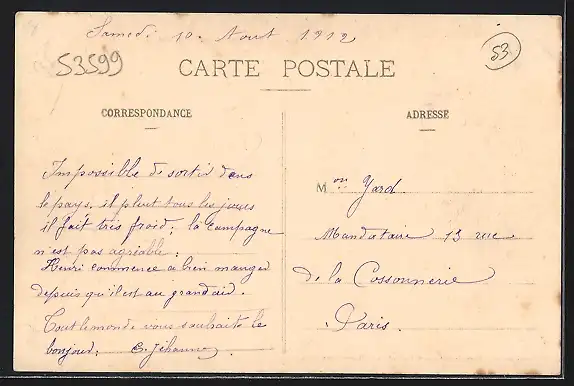 Samedi 10. Aout 1912
53599
53
CARTE POSTALE
CORRESPONDANCE
ADRESSE
Impossible de sortir dans
le pays, il pleut tous les jours
il fait tres froid; la campagne
n'est pas agréable;
Henri commence a bien manger
depuis qu'il est au grand air.
Tout le monde vous souhaite le
bonjour; E. Jehanno
Mon Yard
Mandataire 13 rue
de la Cossonnerie
Paris.